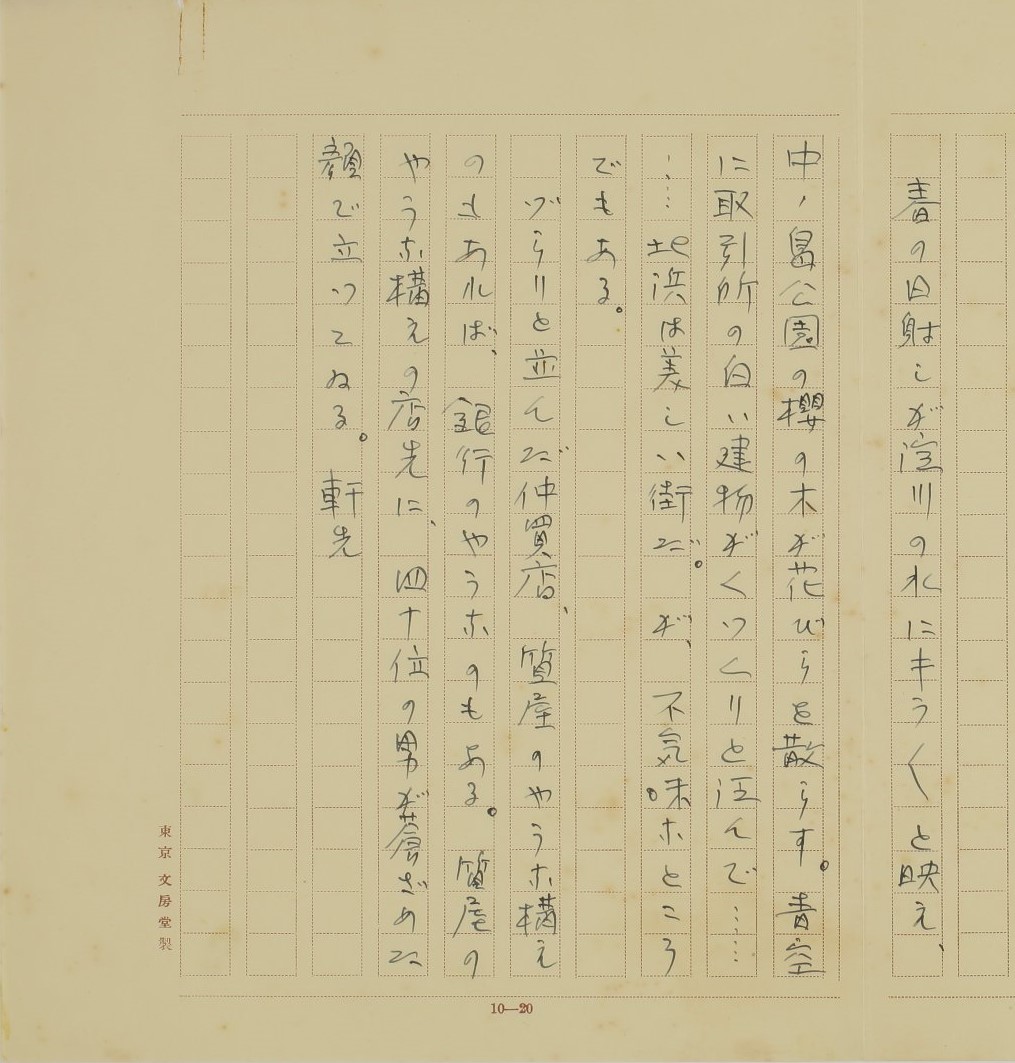 春の日射しが淀川の水にキラ〱と映え、
中ノ島公園の櫻の木が花びらを散らす。青空
に取引所の白い建物がくつくりと泛んで……
……北浜は美しい街だ。が、不気味なところ
でもある。
づらりと並んだ仲買店、質屋のやうな構え
のもあれば、銀行のやうなのもある。質屋の
やうな構えの店先に、四十位の男が蒼ざめた
顔で立つてゐる。軒先
東京文房堂製
10—20